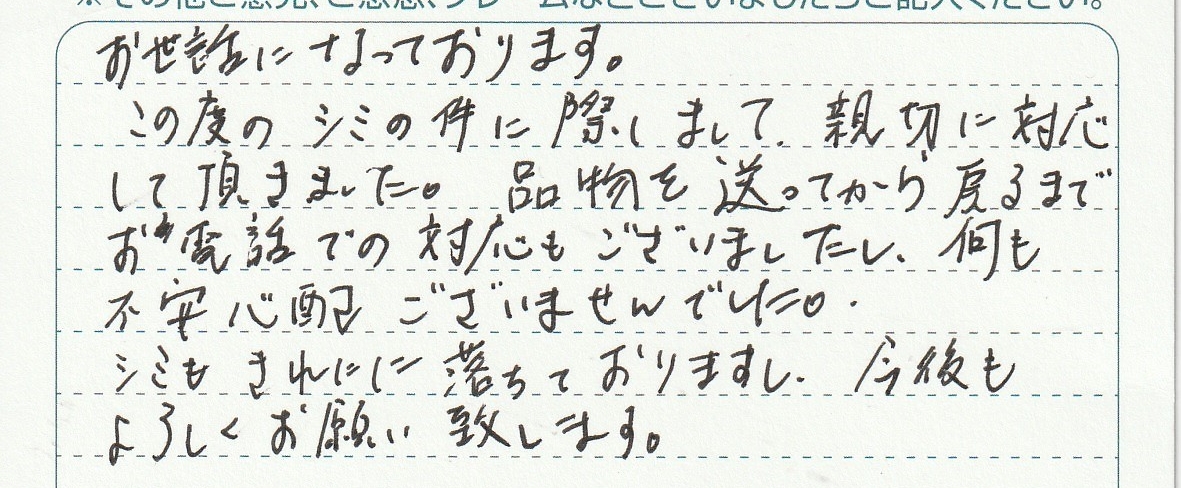 ※その他ご意見、ご感想、クレームなどございましたらご記入ください。
お世話になっております。
この度のシミの件に際しまして、親切に対応
して頂きました。品物を送ってから戻るまで
お電話での対応もございましたし、何も
不安心配ございませんでした。
シミもきれいに落ちておりますし、今後も
よろしくお願い致します。